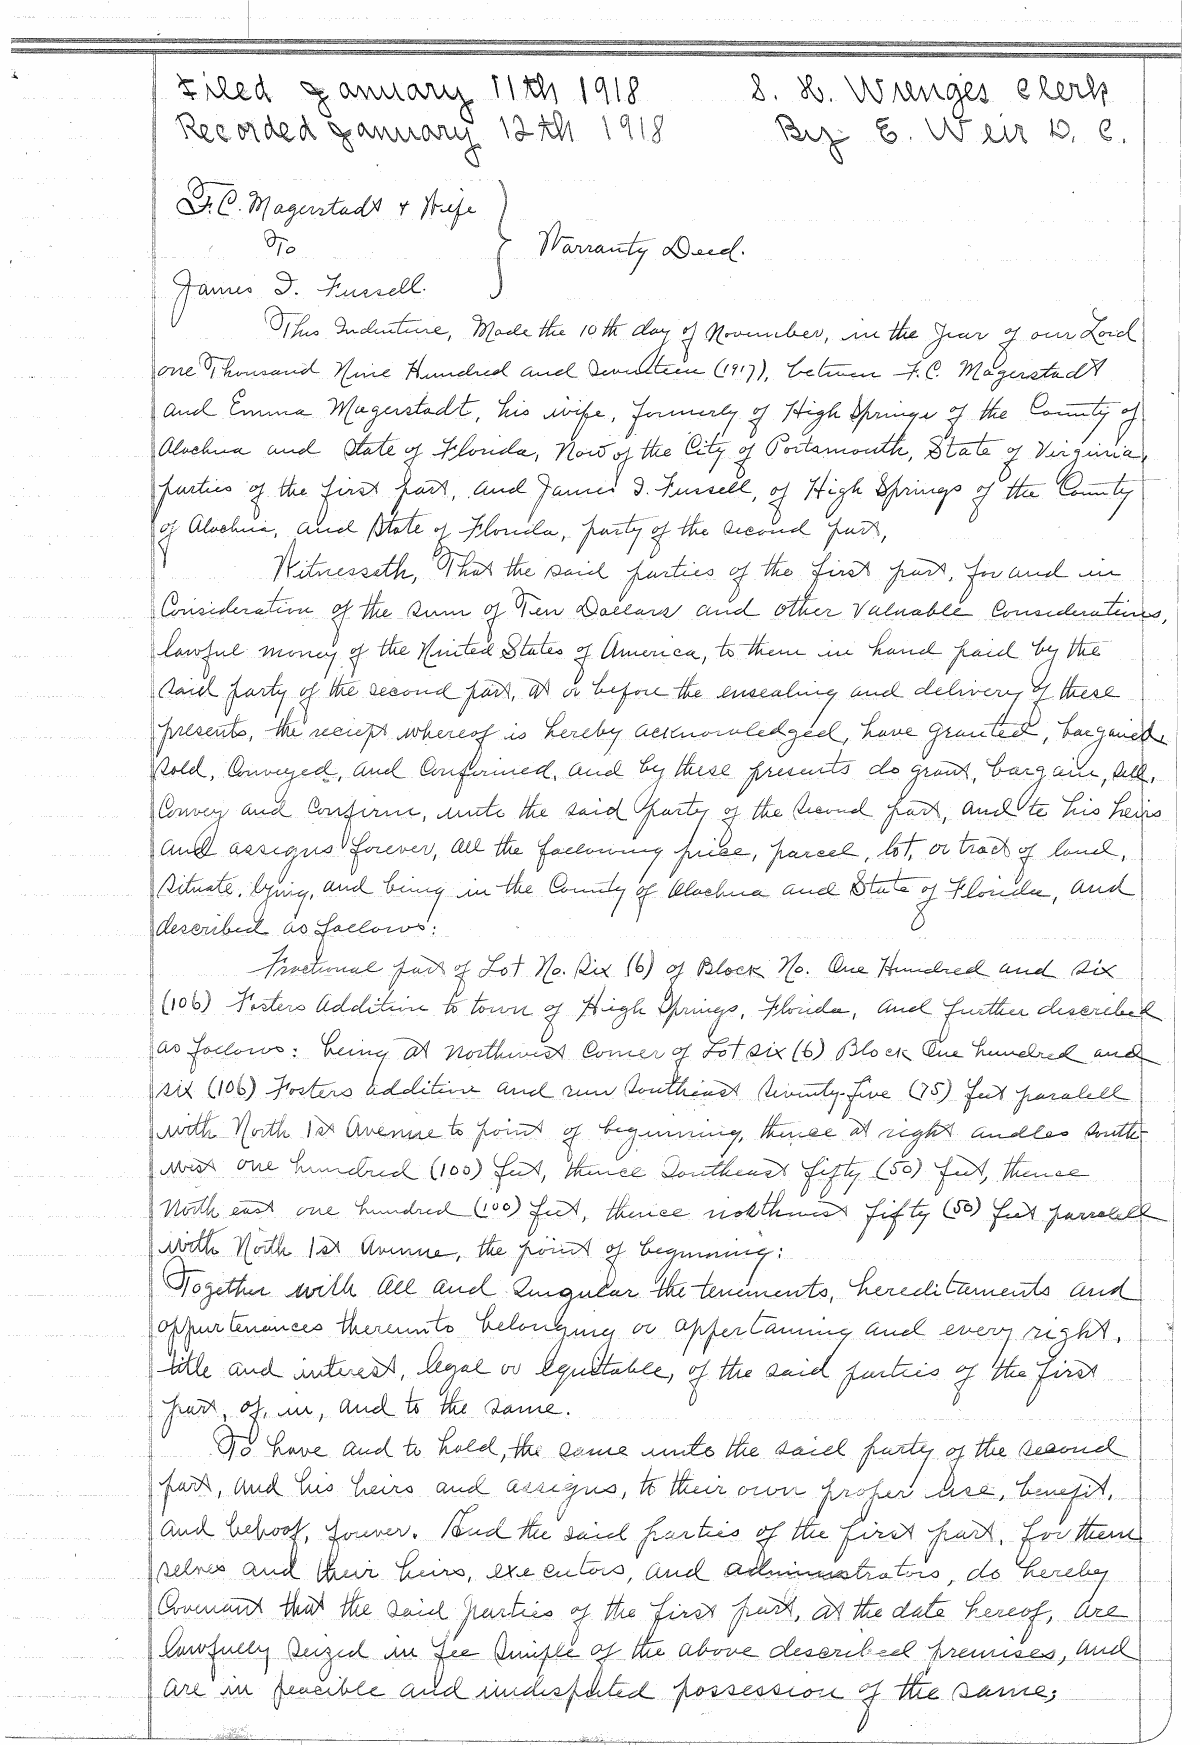 Filed January 11th 1918 S. H. Wienges Clerk
Recorded January 12th 1918 By E. Weir D. C.
F.C. Magerstadt & Wife
To
Warranty Deed.
James I. Fussell.
This Indenture, Made the 10th day of November, in the Year of our Lord
one Thousand Nine Hundred and Seventeen (1917), between F.C. Magerstadt
and Emma Magerstadt, his wife, formerly of High Springs of the County of
Alachua and State of Florida, Now of the City of Portsmouth, State of Virginia,
parties of the first part, and James I. Fussell, of High Springs of the County
of Alachua, and State of Florida, party of the second part,
Witnesseth, That the said parties of the first part, for and in
Consideration of the sum of Ten Dollars and other Valuable Considerations,
lawful money of the United States of America, to them in hand paid by the
said party of the second part, at or before the ensealing and delivery of these
presents, the reciept whereof is hereby acknowledged, have granted, bargained
sold, Conveyed, and Confirmed, and by these presents do grant, bargain, sell,
Convey and Confirm, unto the said party of the second part, and to his heirs
and assigns forever, all the following peice, parcel, lot, or tract of land,
situate, lying, and being in the County of Alachua and State of Florida, and
described as follows:
Fractional part of Lot No. Six (6) of Block No. One Hundred and six
(106) Fosters Addition to town of High Springs, Florida, and further described
as follows: being at Northwest Corner of Lot six (6) Block One hundred and
six (106) Fosters addition and run Southeast Seventy-five (75) feet paralell
with North 1st Avenue to point of beginning, thence at right andles South-
west one hundred (100) feet, thence Southeast fifty (50) feet, thence
North east one hundred (100) feet, thence northwest fifty (50) feet parralell
with North 1st Avenue, the point of beginning:
Together with all and singular the tenements, hereditaments and
appurtenances thereunto belonging or appertaining and every right,
title and interest, legal or equitable, of the said parties of the first
part, of, in, and to the same.
To have and to hold, the same unto the said party of the second
part, and his heirs and assigns, to their own proper use, benefit,
and behoof, forever. And the said parties of the first part, for them
selves and their heirs, executors, and administrators, do hereby
Covenant that the said parties of the first part, at the date hereof, are
lawfully seized in fee simple of the above described premises, and
are in peacible and undisputed possession of the same;